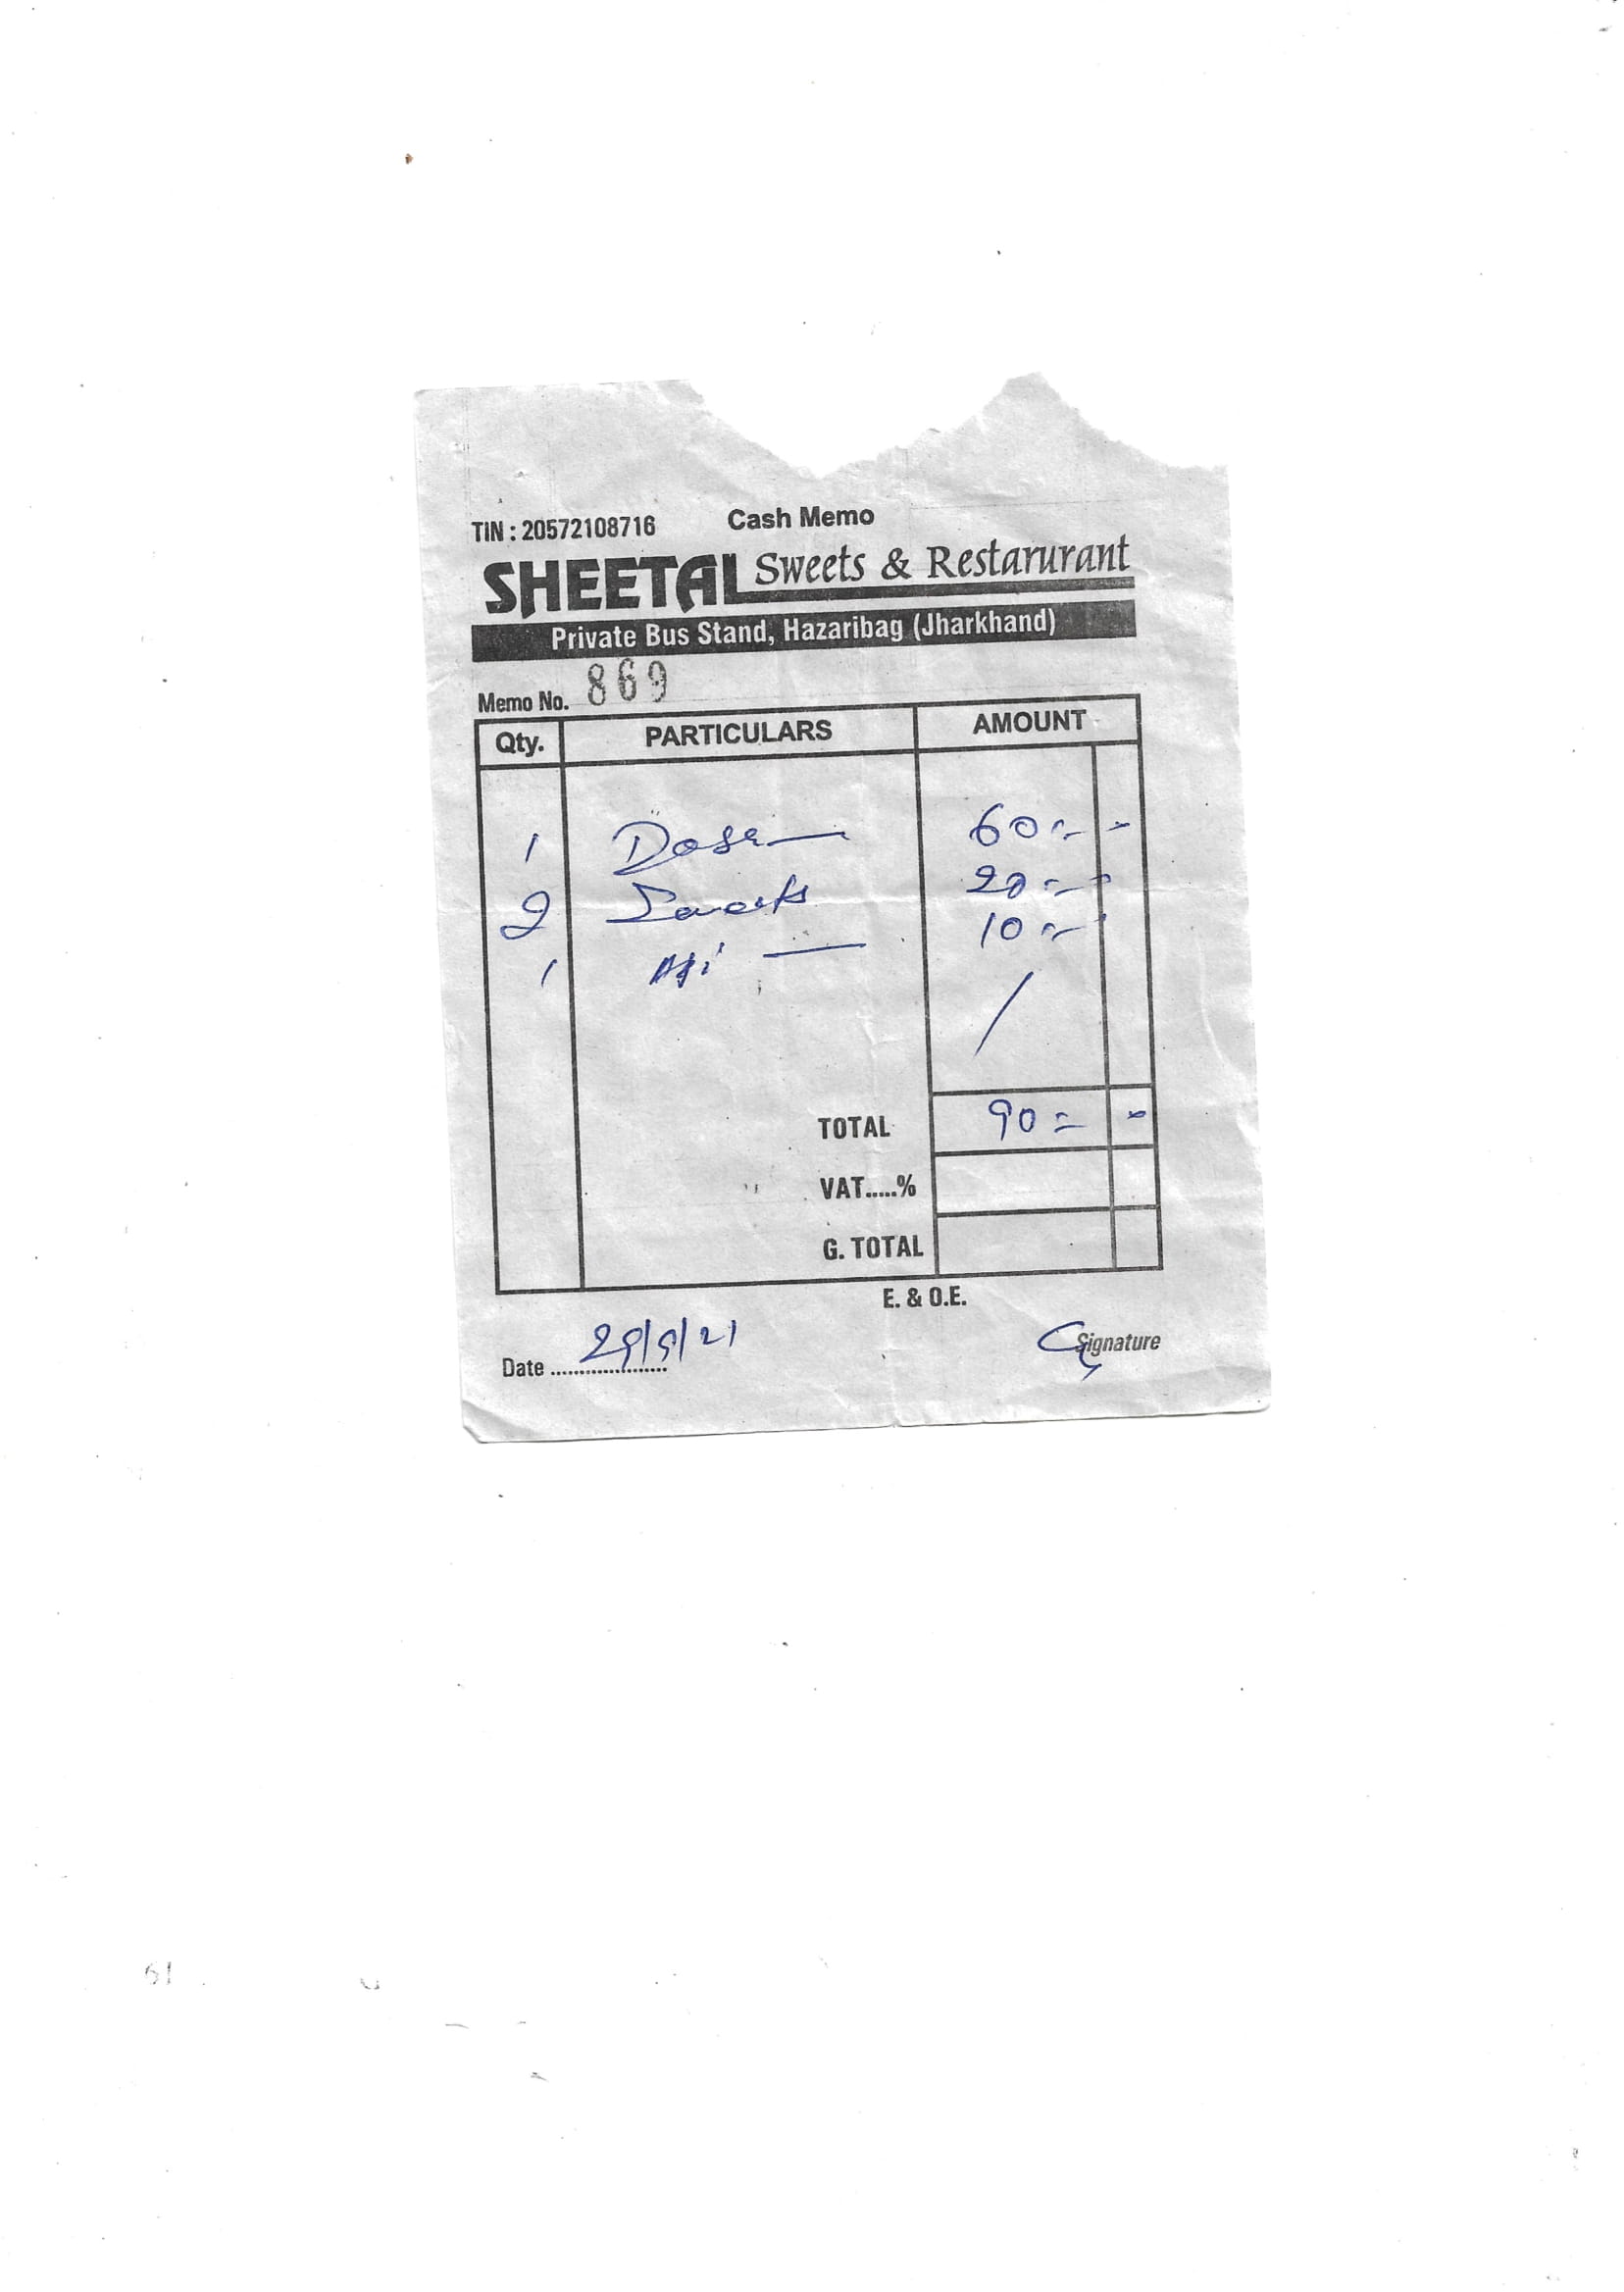 TIN : 20572108716 Cash Memo
SHEETAL Sweets & Restarurant
Private Bus Stand, Hazaribag (Jharkhand)
Memo No. 869
Qty. PARTICULARS AMOUNT
1 Dosa 60=-
2 Sweets 20=-
1 10=-
TOTAL 90=-
VAT.....%
G. TOTAL
E. & O.E.
Date .................... 29/9/21 Signature